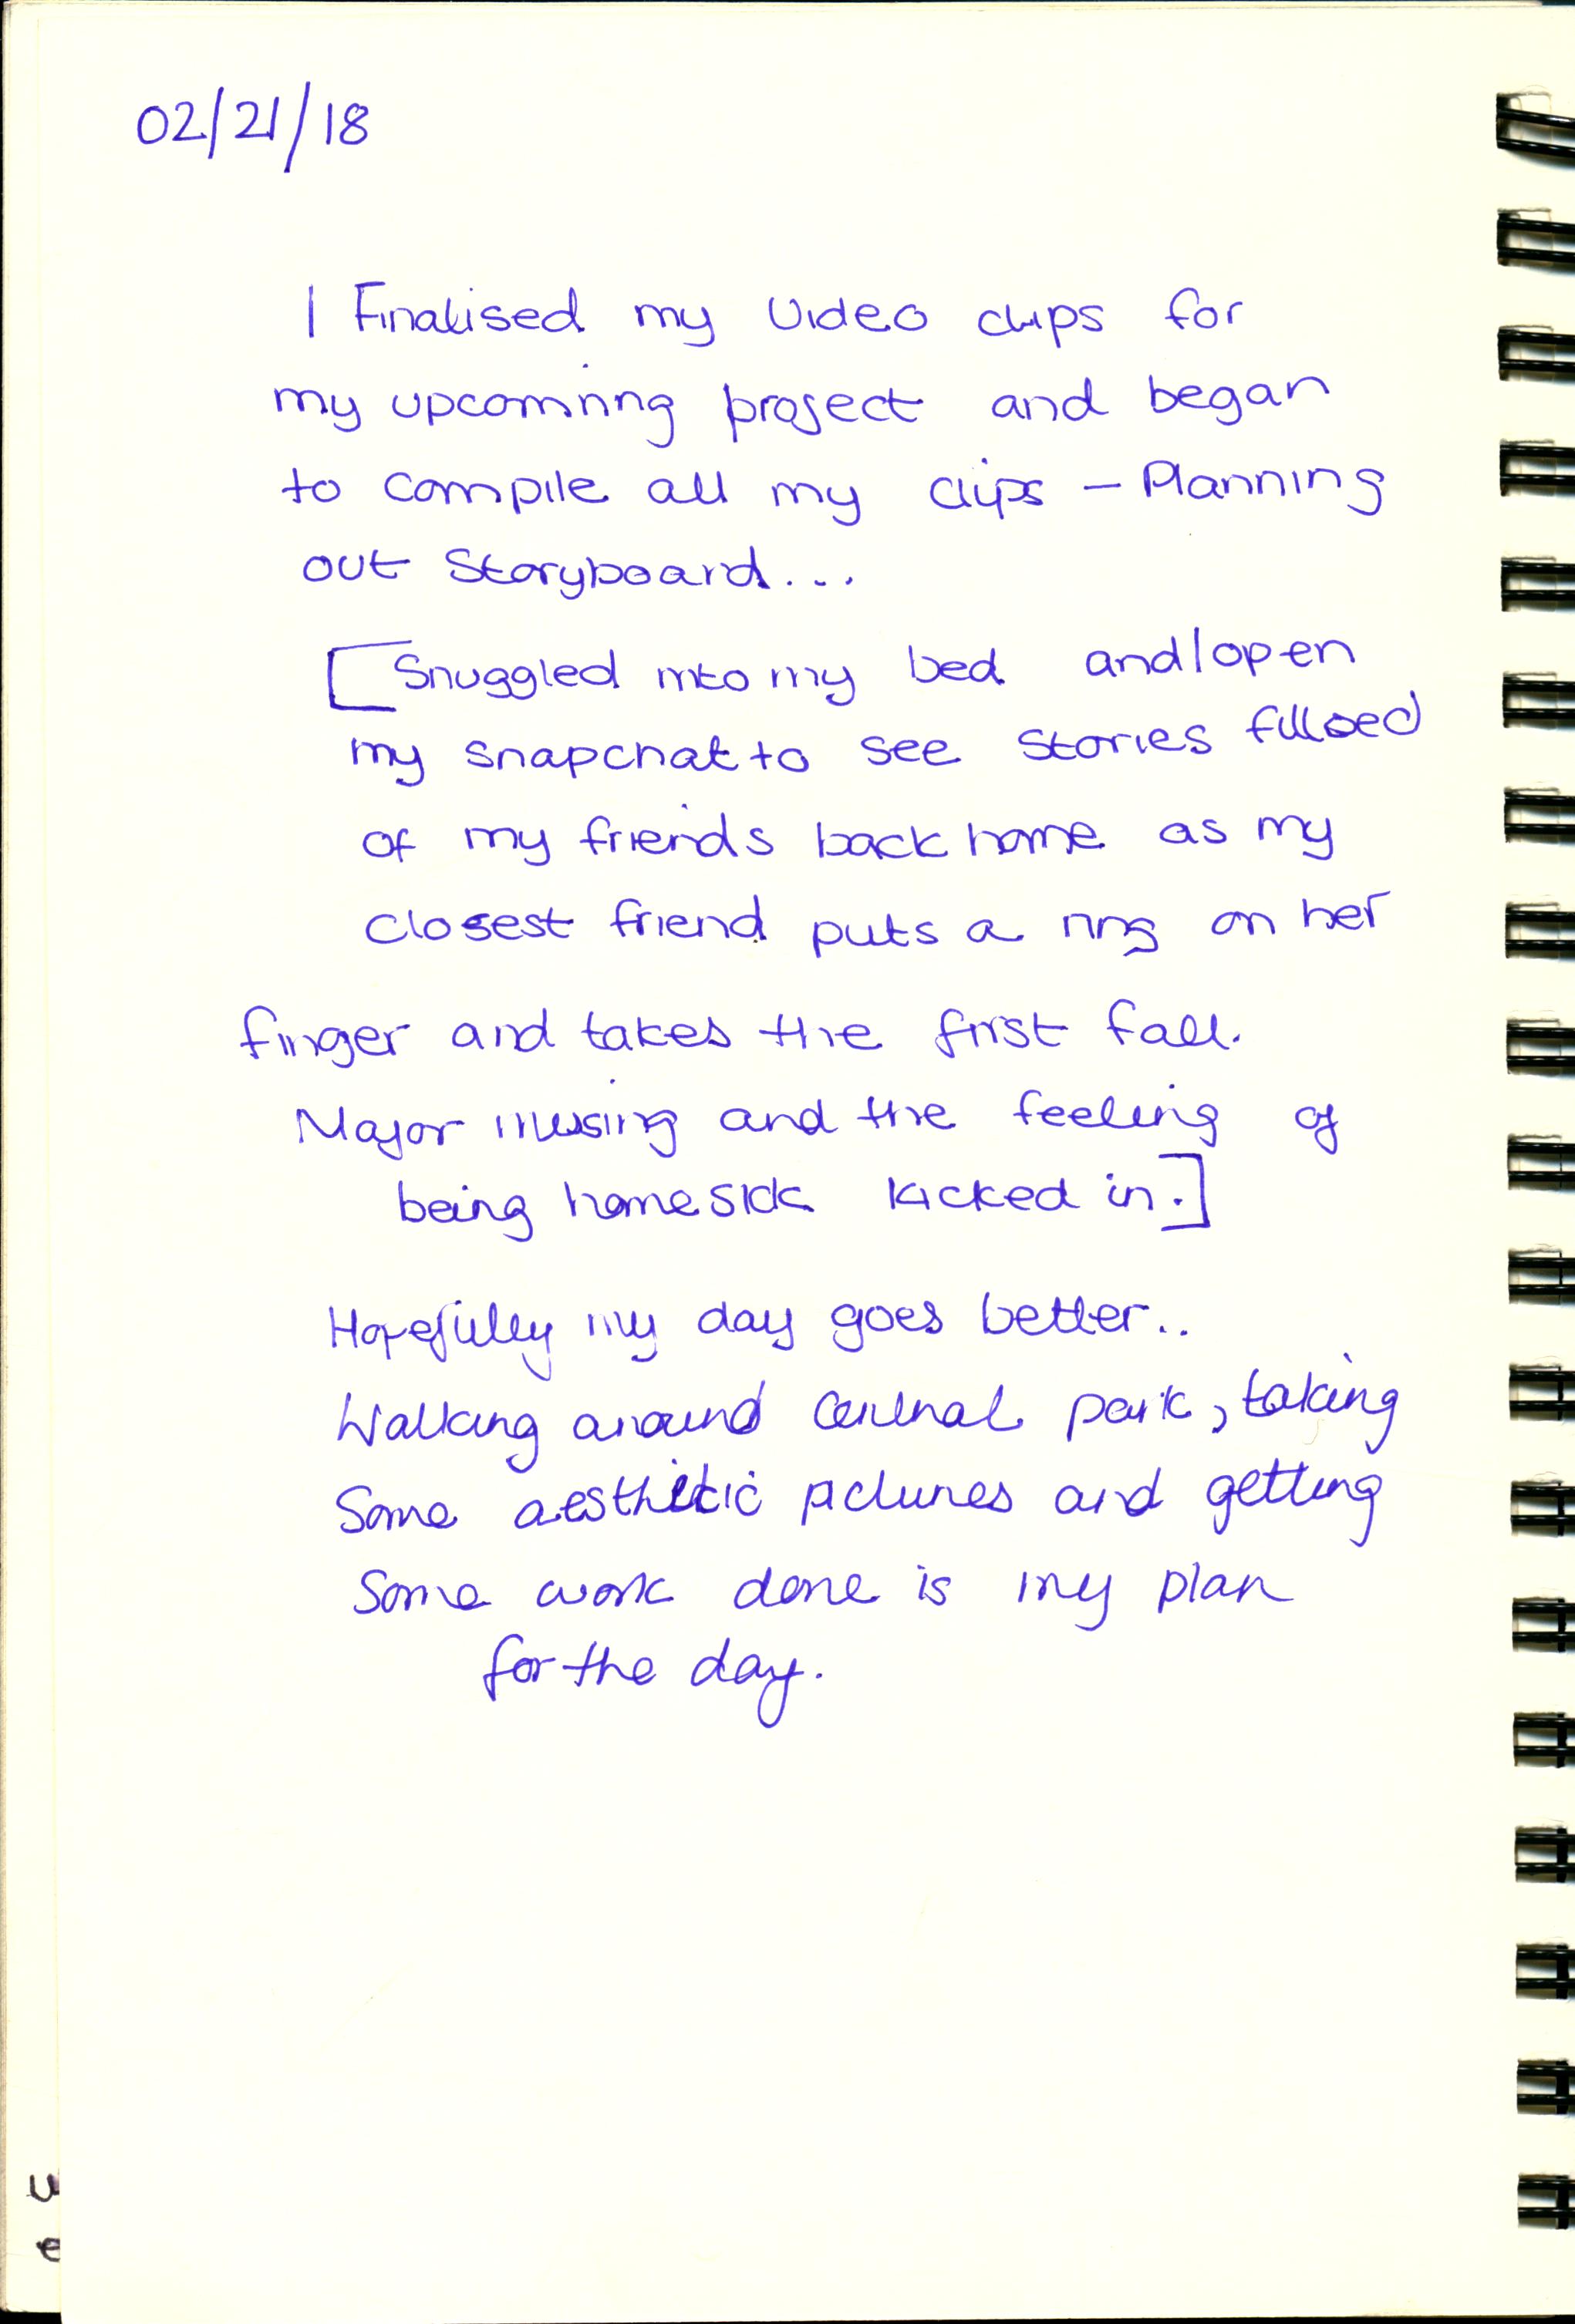 02/21/18
I Finalised my video clips for
my upcoming project and began
to compile all my clips – Planning
out Storyboard...
[Snuggled into my bed and I open
my snapchat to see stories filled
of my friends back home as my
closest friend puts a ring on her
finger and takes the first fall.
Major missing and the feeling of
being homesick kicked in.]
Hopefully my day goes better..
Walking around central park, taking
Some aesthetic pictures and getting
Some work done is my plan
for the day.